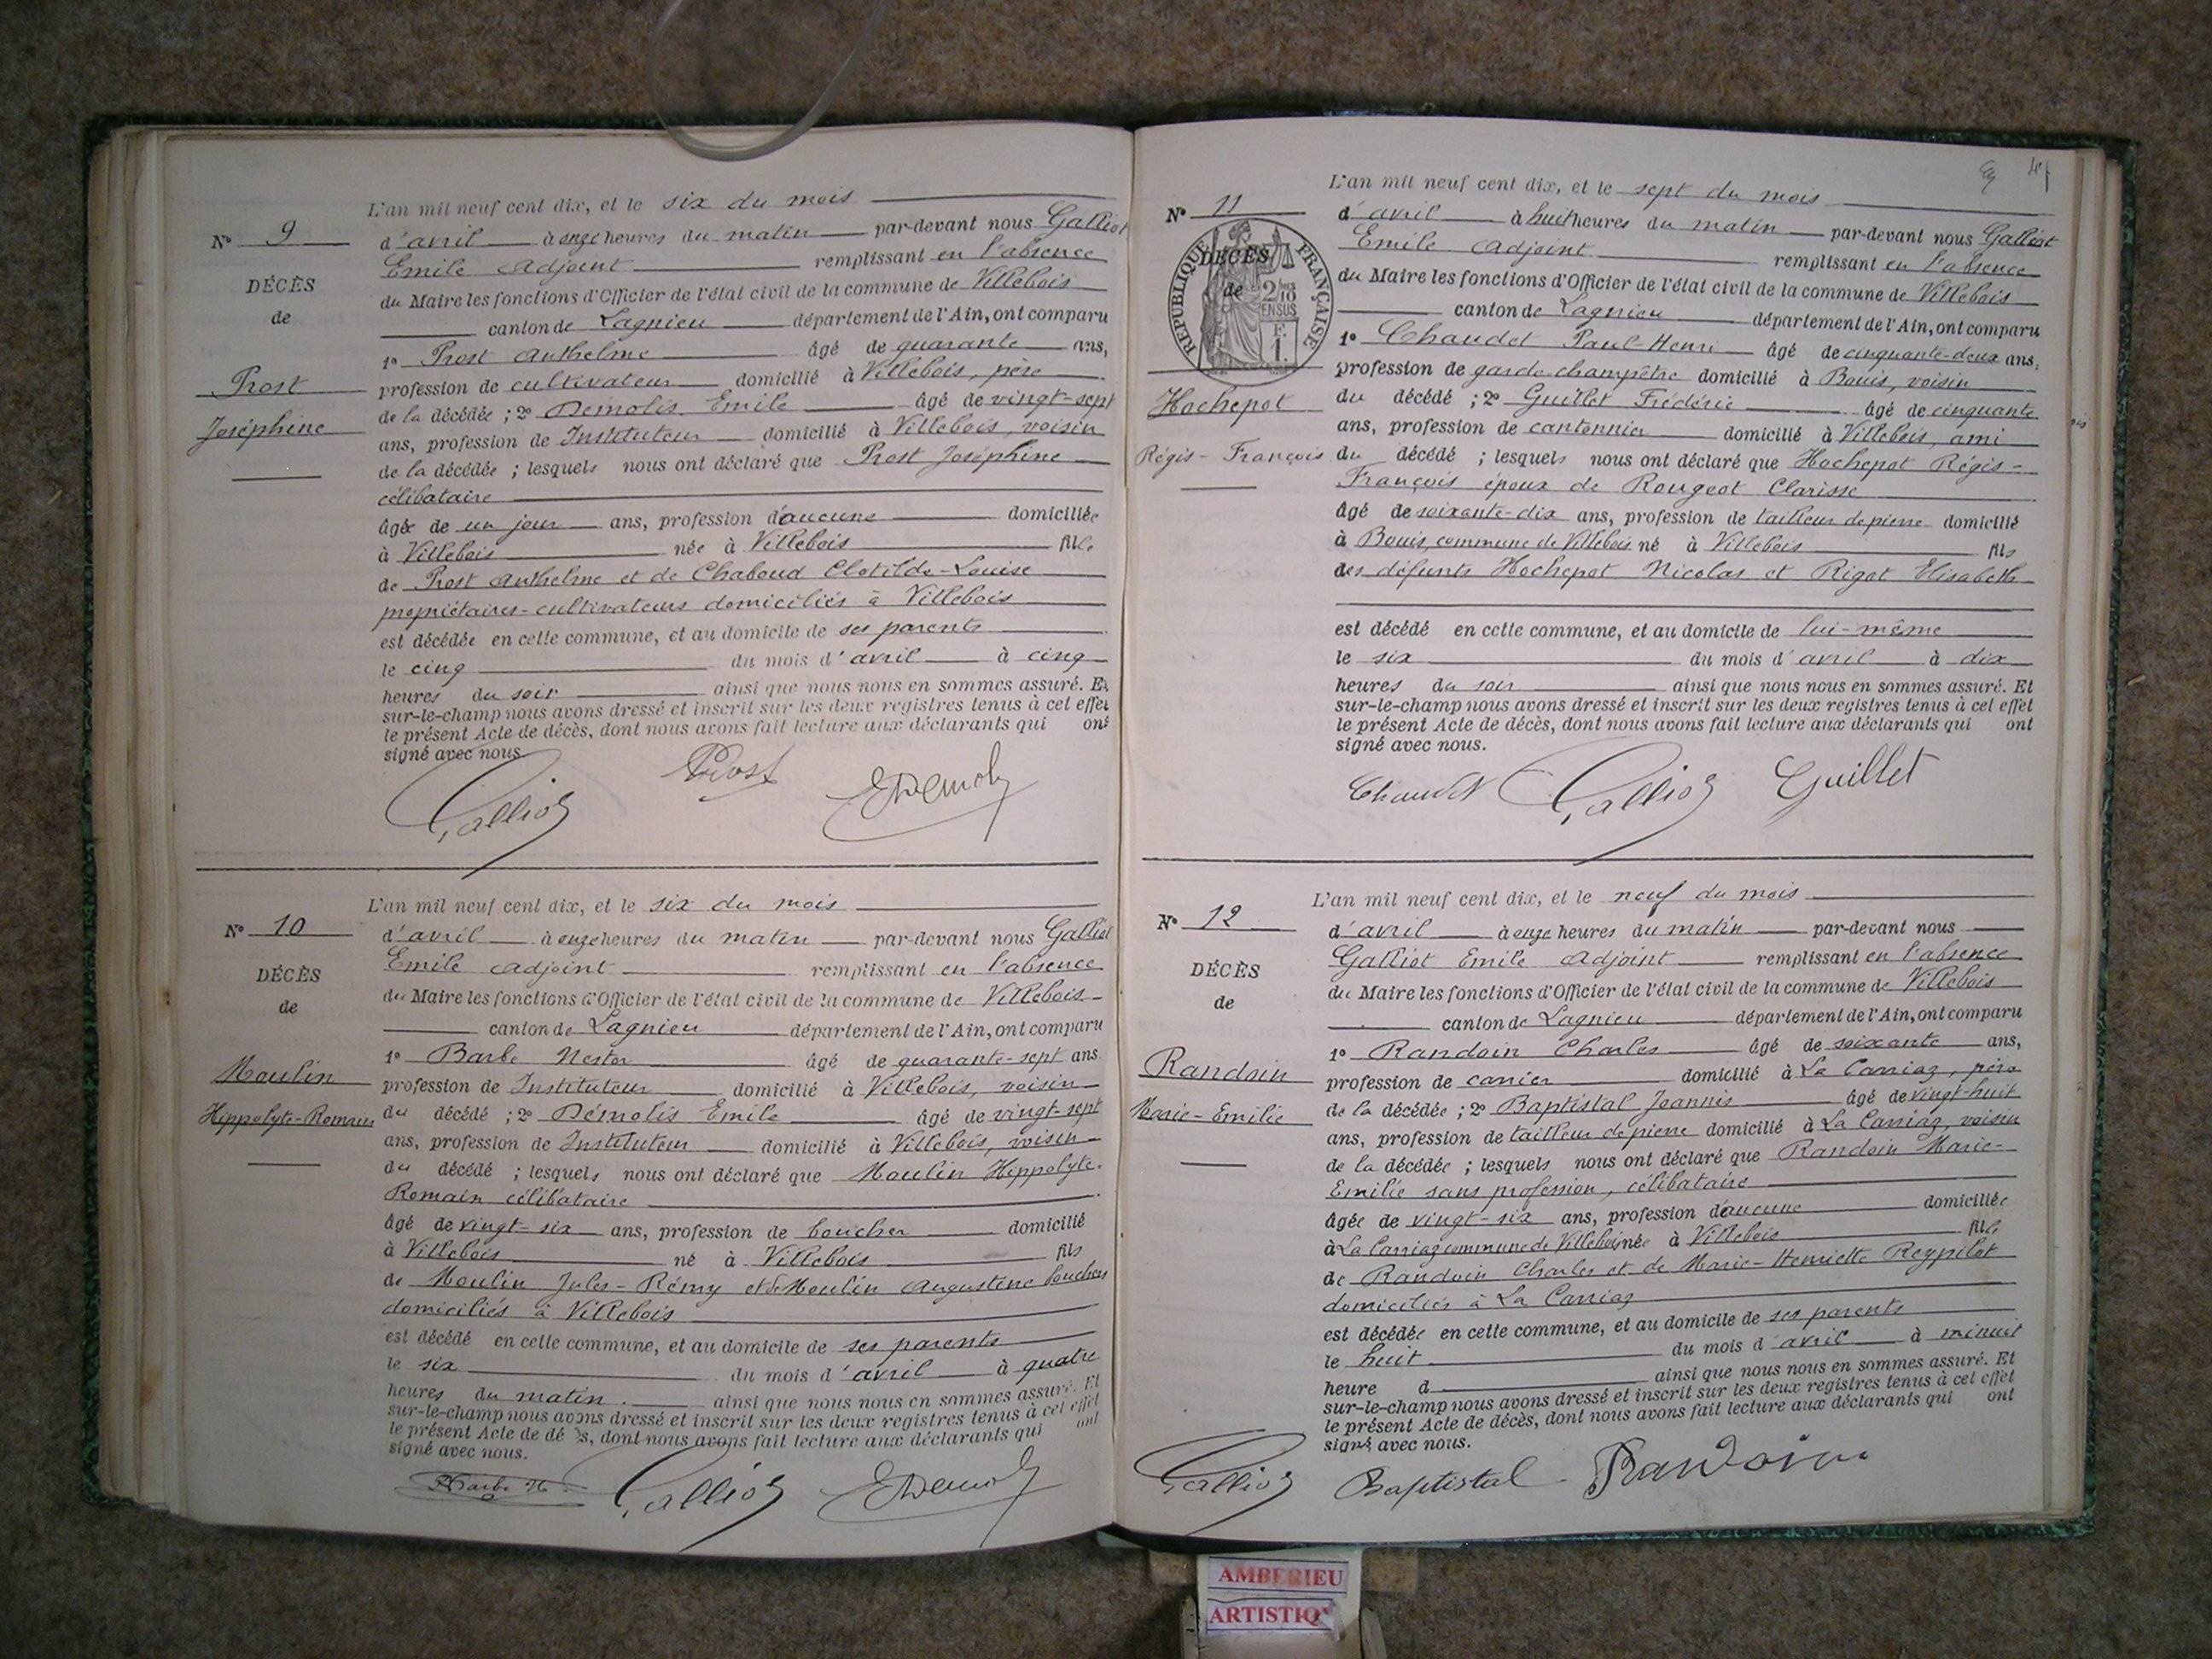 L'an mil neuf cent dix, et le six du mois
N° 9
d'avril à onze heures du matin par-devant nous Galliot
Emile adjoint remplissant en l'absence
DÉCÈS
du Maire les fonctions d'Officier de l'état civil de la commune de Villebois
de
canton de Lagnieu département de l'Ain, ont comparu
1° Prost Anthelme âgé de quarante ans,
Prost
profession de cultivateur domicilié à Villebois, père
de la décédée ; 2° Démolis Emile âgé de vingt-sept
Joséphine
ans, profession de Instituteur domicilié à Villebois, voisin
de la décédée ; lesquels nous ont déclaré que Prost Joséphine
célibataire
âgée de un jour ans, profession d'aucune domiciliée
à Villebois née à Villebois fille
de Prost Anthelme et de Chaboud Clotilde-Louise
propriétaires-cultivateurs domiciliés à Villebois
est décédée en cette commune, et au domicile de ses parents
le cinq du mois d'avril à cinq
heures du soir ainsi que nous nous en sommes assuré. Et
sur-le-champ nous avons dressé et inscrit sur les deux registres tenus à cet effet
le présent Acte de décès, dont nous avons fait lecture aux déclarants qui ont
signé avec nous.
Galliot Prost EDemolis
L'an mil neuf cent dix, et le six du mois
N° 10
d'avril à onze heures du matin par-devant nous Galliot
Emile adjoint remplissant en l'absence
DÉCÈS
du Maire les fonctions d'Officier de l'état civil de la commune de Villebois
de
canton de Lagnieu département de l'Ain, ont comparu
1° Barbe Nestor âgé de quarante-sept ans
Moulin
profession de Instituteur domicilié à Villebois, voisin
Hippolyte-Romain
du décédé ; 2° Démolis Emile âgé de vingt-sept
ans, profession de Instituteur domicilié à Villebois, voisin
du décédé ; lesquels nous ont déclaré que Moulin Hippolyte-
Romain célibataire
âgé de vingt-six ans, profession de boucher domicilié
à Villebois né à Villebois fils
de Moulin Jules-Rémy et de Moulin Augustine bouchers
domiciliés à Villebois
est décédé en cette commune, et au domicile de ses parents
le six du mois d'avril à quatre
heures du matin. ainsi que nous nous en sommes assuré. Et
sur-le-champ nous avons dressé et inscrit sur les deux registres tenus à cet effet
le présent Acte de décès, dont nous avons fait lecture aux déclarants qui ont
signé avec nous.
Barbe N. Galliot EDemolis
L'an mil neuf cent dix, et le sept du mois
N° 11
d'avril à huit heures du matin par-devant nous Galliot
Emile adjoint remplissant en l'absence
RÉPUBLIQUE FRANÇAISE
DÉCÈS
de
du Maire les fonctions d'Officier de l'état civil de la commune de Villebois
canton de Lagnieu département de l'Ain, ont comparu
1° Chaudet Paul-Henri âgé de cinquante-deux ans,
profession de garde-champêtre domicilié à Bouis, voisin
Hochepot
du décédé ; 2° Guillet Frédéric âgé de cinquante
ans, profession de cantonnier domicilié à Villebois, ami
Régis-François
du décédé ; lesquels nous ont déclaré que Hochepot Régis-
François époux de Rougeot Clarisse
âgé de soixante-dix ans, profession de tailleur de pierre domicilié
à Bouis, commune de Villebois né à Villebois fils
des défunts Hochepot Nicolas et Rigot Elisabeth
est décédé en cette commune, et au domicile de lui-même
le six du mois d'avril à dix
heures du soir ainsi que nous nous en sommes assuré. Et
sur-le-champ nous avons dressé et inscrit sur les deux registres tenus à cet effet
le présent Acte de décès, dont nous avons fait lecture aux déclarants qui ont
signé avec nous.
Chaudet Galliot Guillet
L'an mil neuf cent dix, et le neuf du mois
N° 12
d'avril à onze heures du matin par-devant nous
Galliot Emile adjoint remplissant en l'absence
DÉCÈS
du Maire les fonctions d'Officier de l'état civil de la commune de Villebois
de
canton de Lagnieu département de l'Ain, ont comparu
1° Randoin Charles âgé de soixante ans,
Randoin
profession de carrier domicilié à La Carriaz, père
Marie-Emilie
de la décédée ; 2° Baptistal Joannis âgé de vingt-huit
ans, profession de tailleur de pierre domicilié à La Carriaz, voisin
de la décédée ; lesquels nous ont déclaré que Randoin Marie-
Emilie sans profession, célibataire
âgée de vingt-six ans, profession d'aucune domiciliée
à La Carriaz commune de Villebois née à Villebois fille
de Randoin Charles et de Marie-Henriette Reypilot
domiciliés à La Carriaz
est décédée en cette commune, et au domicile de ses parents
le huit du mois d'avril à minuit
heure d ainsi que nous nous en sommes assuré. Et
sur-le-champ nous avons dressé et inscrit sur les deux registres tenus à cet effet
le présent Acte de décès, dont nous avons fait lecture aux déclarants qui ont
signé avec nous.
Galliot Baptistal Randoin
AMBERIEU
ARTISTIQ